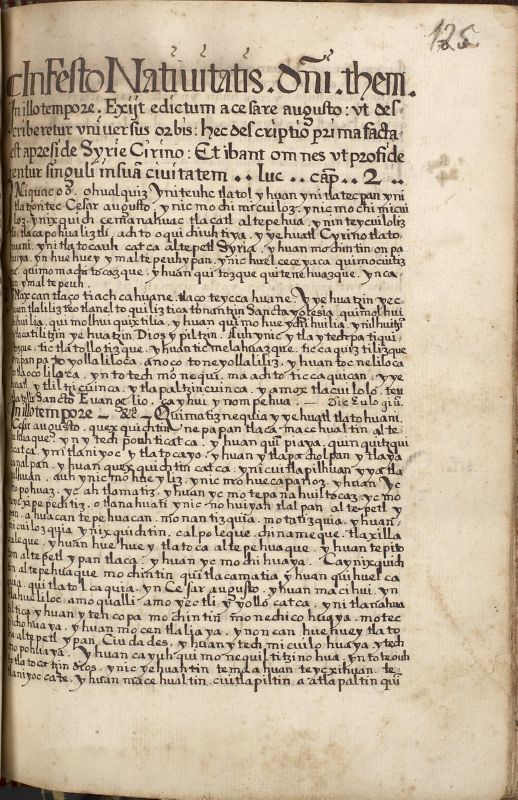 125
In Festo Nativitatis . dñi . them .
In illo tempore . Exijt edictum a cesare augusto : vt des-
criberetur vniversus orbis : hec descriptio prima facta
est apreside Syrie Cirino : Et ibant omnes vt profide
rentur singuli insuã civitatem .. luc .. cap .. 2 ..
ohualquiz yniteuhc tlatol yhuan ynitlatecpan yni
Cesar augusto , ynic mochi micuiloz . ynic mochi micui
loz . ynixquich cemanahuac tlacatl altepehua , yninteycuiloliz
tlacapohualiztli , achto oquichiuhtiya , yyehuatl Cyrino tlato
huani . ynitlatocauh catca altepetl Syria . yhuan mochintin onpa
huiya . ynhuehuey ymaltepeuhypan . ynichuel ceceyaca
quimomachitocazque . yhuan quitozque quitenehuazque . ynca
ymaltepeuh .
tlaçotiachcahuane . tlaçoteyccahuane . Yyehuatzin yec
teotlanel toquiliztica tonantzin Sancta yglesia . quimolhui
quimolhui quixtilia . yhuan quimohueychihuilia .
tlacatilitzin yehuatzin Dios ypiltzin . Auh ynic ytla ytechpa tiqui
tozque . tictlatollotizque . yhuan ticmelahuazque . ticcaquiztilizque
ypan pa toyollaliloca . anoço toneyollaliliz . yhuan tocneliloca
totlaocoliloca . ynto techmonequi . ma achto ticcaquican . yye
huatl . ytlilticuinca . ytlapaltzincuinca . yamoxtlacuilolo . teu
Sancto Evangelio . ca yhui ynompehua . — Dic Eulo giũ .
In illo tempore — &c — Quimatiznequia yyehuatl tlatohuani .
Cesar augusto . quexquichtin nepapan tlaca macehualtin alte
pehuaque . yn ytech pouhticatca . yhuan quipiaya . quinquitzqui
catca . ynitlaniyoc ytlatocayo . yhuan ytlapacholpan ytlaya
canalpan . yhuan quexquichtin catca . ynicuitlapilhuan yyatla
palhuan . auh ynic mo hueyliz . ynic mohuecapanoz . yhuan yc
mopohuaz . yc ahtlamatiz . yhuan yc motepanahuiltocaz . yc mo
tlanahuati . ynic nohuiyan tlalpan altepetl y
pan . ahuacan tepehuacan . monantizquia . motatizquia . yhuan
micuilozquia ynixquichtin . calpoleque . chinameque . tlaxilla
caleque . yhuan huehuey tlatoca altepehuaque . yhuan tepito
ton altepetl ypan tlaca . yhuan yc mochi huaya . Ca ynixquich
tin altepehuaque mochintin quitlacamatia yhuan quihuelca
quia . quitlatolcaquia . yn Cesar augusto . yhuan macihui . yn
tlahueliloc . amo qualli . amo yectli yyollo catca . ynitlanahua
tiltica yhuan ytencopa mochintin monechicohuaya . motec
pichohuaya . yhuan mocentlaliaya . ynoncan huehuey tlato
ca altepetl ypan . Ciudades . yhuan ytech micuilohuaya . ytech
mopohuaya . Yhuan ca yuh quimonequiltitzinohua . yn toteouh
totlatocatzin Dios . ynic yehuantin temachuan teycxihuan . te
tlaniyoccate . yhuan macehualtin . cuitlapiltin aatlapaltin quĩ